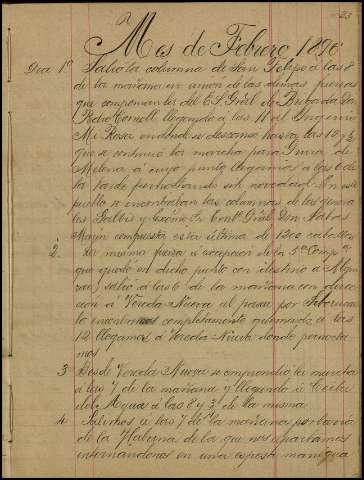 23
Mes de Febrero 1896
Dia 1º Salio la columna de San Felipe á las 8
de la mañana en union de las demas fuerzas
que componian las del E. S. Gral de Brigada Dn
Pedro Cornell llegando a las 11 al Ingenio
Mi Rosa en donde se descansó hasta las 12 y ½
que se continuó la marcha para Guira de
Melena á cuyo punto llegamos á las 6 de
la tarde pernoctando sin novedad. En este
pueblo se encontraban las columnas de los generales
Galbis y Excmo Sr Cont. Gral Don Sabas
Marin compuesta esta última de 1300 caballos
2 La misma fuerza á excepcion de la 5ª Compª
que quedó en dicho punto con destino á
salió á las 6 de la mañana con direc
cion á Vereda Nueva al pasar por
lo encontramos completamente quemado a las
12 llegamos á Vereda Nueva donde pernocta
mos
3 Desde Vereda Nueva se emprendio la marcha
á las 7 de la mañana y llegando á Ceiba
del Agua á las 8 y ½ de la misma
4 Salimos á las 7 de la mañana por
de la Habana de la que nos apartamos
internandonos en una espesa manigua